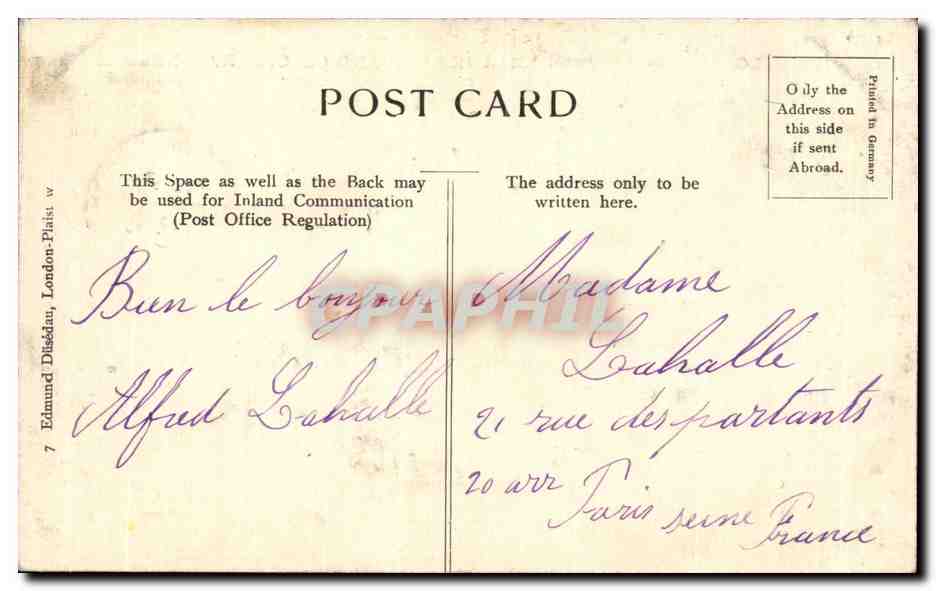 POST CARD
Only the
Address on
this side
if sent
Abroad.
Printed in Germany
This Space as well as the Back may
be used for Inland Communication
(Post Office Regulation)
The address only to be
written here.
7 Edmund Dlisédau, London-Plaist w
Bien le bonjour
Alfred Lahalle
Madame
Lahalle
21 rue des partants
20 arr
Paris seine France
CPAPHIL